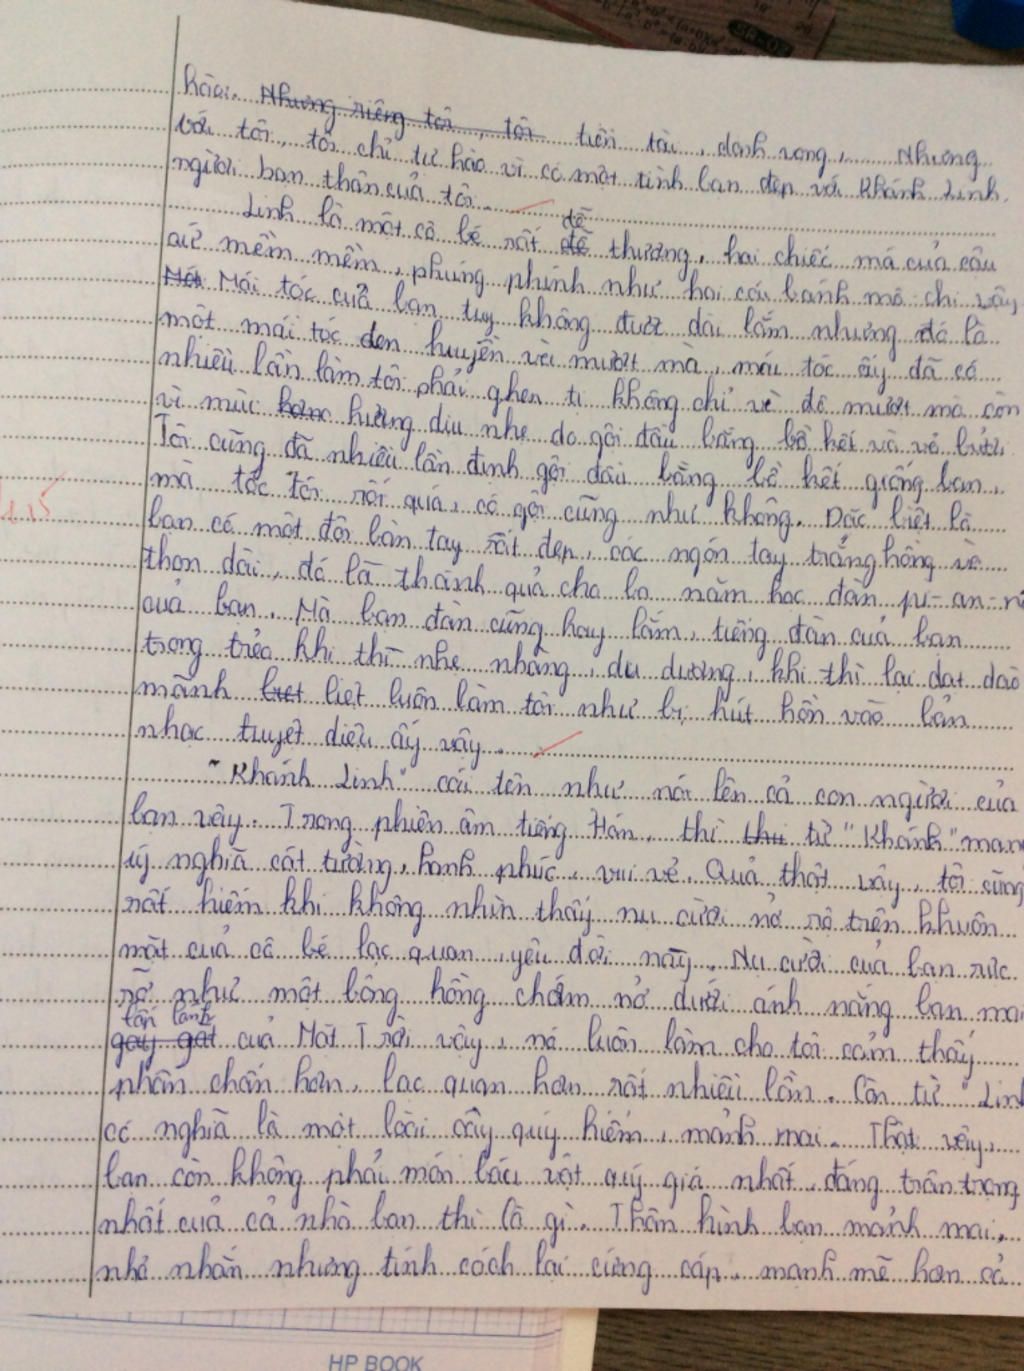 hào. Nhưng riêng tôi, tôi tiền tài, danh vọng,... Nhưng
với tôi, tôi chỉ tự hào vì có một tình bạn đẹp với Khánh Linh
người bạn thân của tôi.
Linh là một cô bé rất dễ dễ thương, hai chiếc má của cậu
ấy mềm mềm, phúng phính như hai cái bánh mô-chi vậy,
Mái tóc của bạn tuy không được dài lắm nhưng đó là
một mái tóc đen huyền và mượt mà, mái tóc ấy đã có
nhiều lần làm tôi phải ghen tị không chỉ về độ mượt mà còn
vì mùi hương dịu nhẹ do gội đầu bằng bồ kết và vỏ bưởi
Tôi cũng đã nhiều lần định gội đầu bằng bồ kết giống bạn,
mà tóc tôi rối quá, có gội cũng như không. Đặc biệt là
bạn có một đôi bàn tay rất đẹp, các ngón tay trắng hồng và
thon dài, đó là thành quả cho ba năm học đàn pi-an-nô
của bạn. Mà bạn đàn cũng hay lắm, tiếng đàn của bạn
trong trẻo khi thì nhẹ nhàng, du dương, khi thì lại dạt dào
mãnh liệt luôn làm tôi như bị hút hồn vào bản
nhạc tuyệt diệu ấy vậy.
"Khánh Linh" cái tên như nói lên cả con người của
bạn vậy. Trong phiên âm tiếng Hán, thì từ "Khánh" mang
ý nghĩa cát tường, hạnh phúc, vui vẻ. Quả thật vậy, tôi cũng
rất hiếm khi không nhìn thấy nụ cười nở rộ trên khuôn
mặt của cô bé lạc quan, yêu đời này. Nụ cười của bạn rực
rỡ như một bông hồng chớm nở dưới ánh nắng ban mai
gay gắt của Mặt Trời vậy, nó luôn làm cho tôi cảm thấy
phấn chấn hơn, lạc quan hơn rất nhiều lần. Còn từ "Linh
có nghĩa là một loài cây quý hiếm, mảnh mai. Thật vậy,
bạn còn không phải món báu vật quý giá nhất, đáng trân trọng
nhất của cả nhà bạn thì là gì. Thân hình bạn mảnh mai,
nhỏ nhắn nhưng tính cách lại cứng cáp, mạnh mẽ hơn cả
HP BOOK